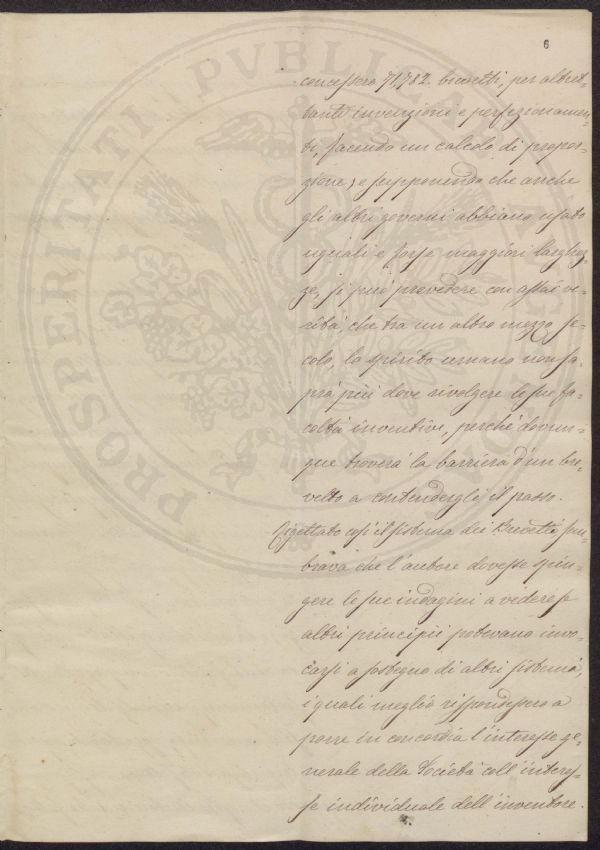 6
concessero 71782 brevetti, per altret-
tante invenzioni e perfezionamen-
ti, facendo un calcolo di propor-
zione, e supponendo che anche
gli altri governi abbiano usato
uguali e forse maggiori larghez-
ze, si può prevedere con assai ve-
rità, che tra un altro mezzo se-
colo, lo spirito umano non sa-
prà più dove rivolgere le sue fa-
coltà inventive, perchè dovun-
que troverà la barriera d'un bre-
vetto a contendergli il passo.
Rigettato così il sistema dei Brevetti, sem-
brava che l'autore dovesse spin-
gere le sue indagini a vedere se
altri principii potevano invo-
carsi a sostegno di altri sistemi,
i quali meglio rispondessero a
porre in concordia l'interesse ge-
nerale della Società coll'interes-
se individuale dell'inventore.
PROSPERITATI PVBLICAE